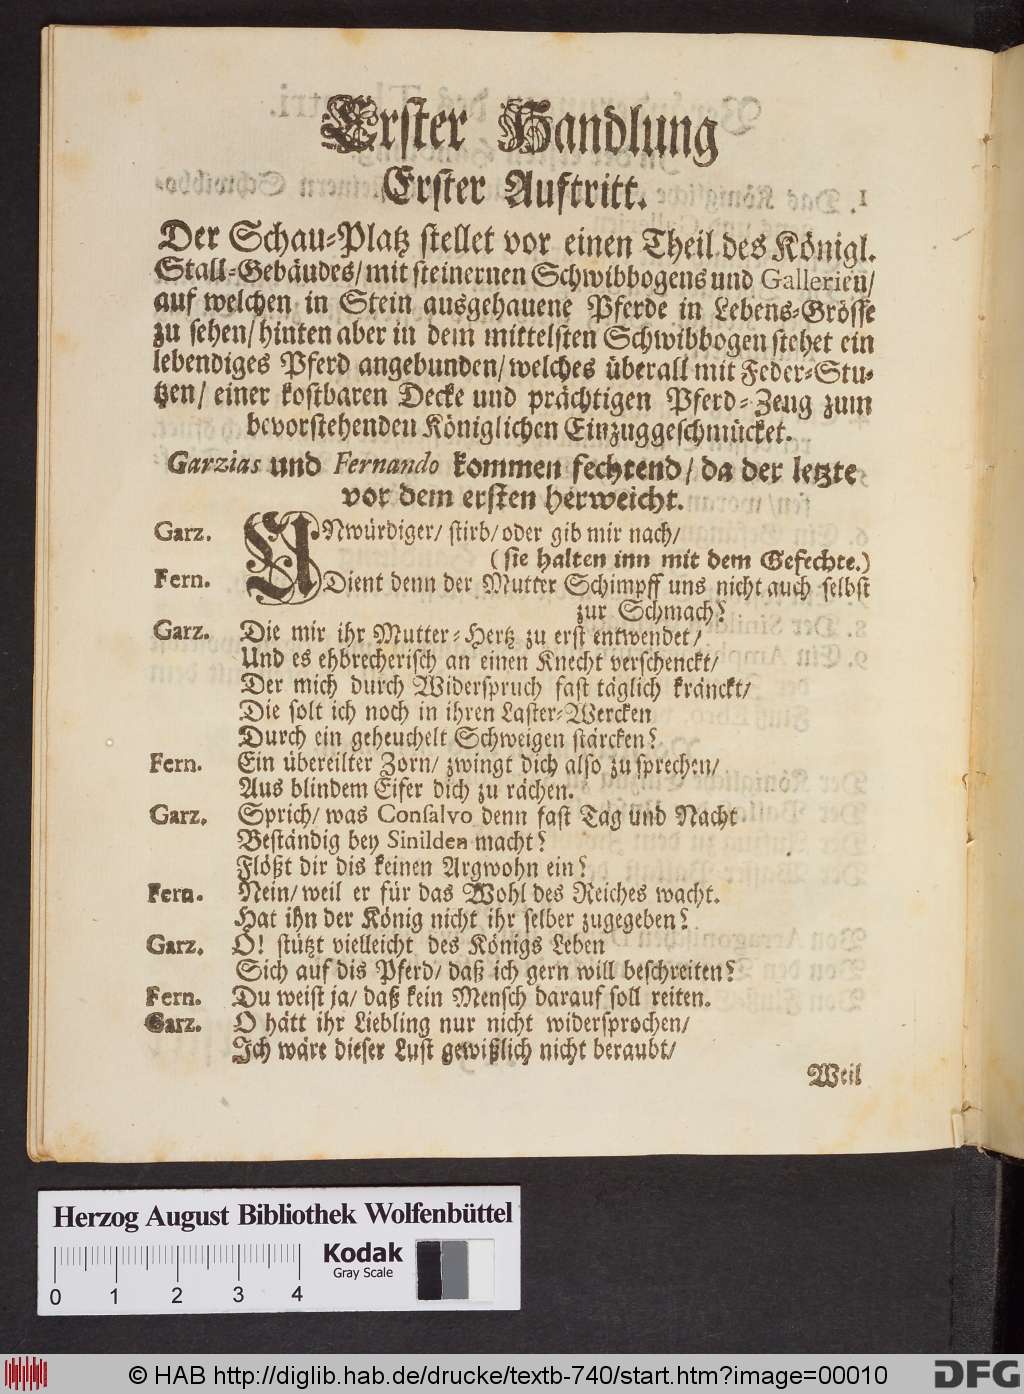 Erster Handlung
Erster Auftritt.
Der Schau-Platz stellet vor einen Theil des Königl.
Stall-Gebäudes/ mit steinernen Schwibbogens und Gallerien/
auf welchen in Stein ausgehauene Pferde in Lebens-Grösse
zu sehen/ hinten aber in dem mittelsten Schwibbogen stehet ein
lebendiges Pferd angebunden/ welches überall mit Feder-Stu-
tzen/ einer kostbaren Decke und prächtigen Pferd-Zeug zum
bevorstehenden Königlichen Einzug geschmücket.
Garzias und Fernando kommen fechtend/ da der letzte
vor dem ersten herweicht.
Garz. UNwürdiger/ stirb/ oder gib mir nach/
(sie halten inn mit dem Gefechte.)
Fern. Dient denn der Mutter Schimpff uns nicht auch selbst
zur Schmach?
Garz. Die mir ihr Mutter-Hertz zu erst entwendet/
Und es ehbrecherisch an einen Knecht verschenckt/
Der mich durch Widerspruch fast täglich kränckt/
Die solt ich noch in ihren Laster-Wercken
Durch ein geheuchelt Schweigen stärcken?
Fern. Ein übereilter Zorn/ zwingt dich also zu sprechen/
Aus blindem Eifer dich zu rächen.
Garz. Sprich/ was Consalvo denn fast Tag und Nacht
Beständig bey Sinilden macht?
Flößt dir dis keinen Argwohn ein?
Fern. Nein/ weil er für das Wohl des Reiches wacht.
Hat ihn der König nicht ihr selber zugegeben?
Garz. O! stützt vielleicht des Königs Leben
Sich auf dis Pferd/ daß ich gern will beschreiten?
Fern. Du weist ja/ daß kein Mensch darauf soll reiten.
Garz. O hätt ihr Liebling nur nicht widersprochen/
Ich wäre dieser Lust gewißlich nicht beraubt/
Weil
Herzog August Bibliothek Wolfenbüttel
Kodak
Gray Scale
0 1 2 3 4
© HAB http://diglib.hab.de/drucke/textb-740/start.htm?image=00010
DFG